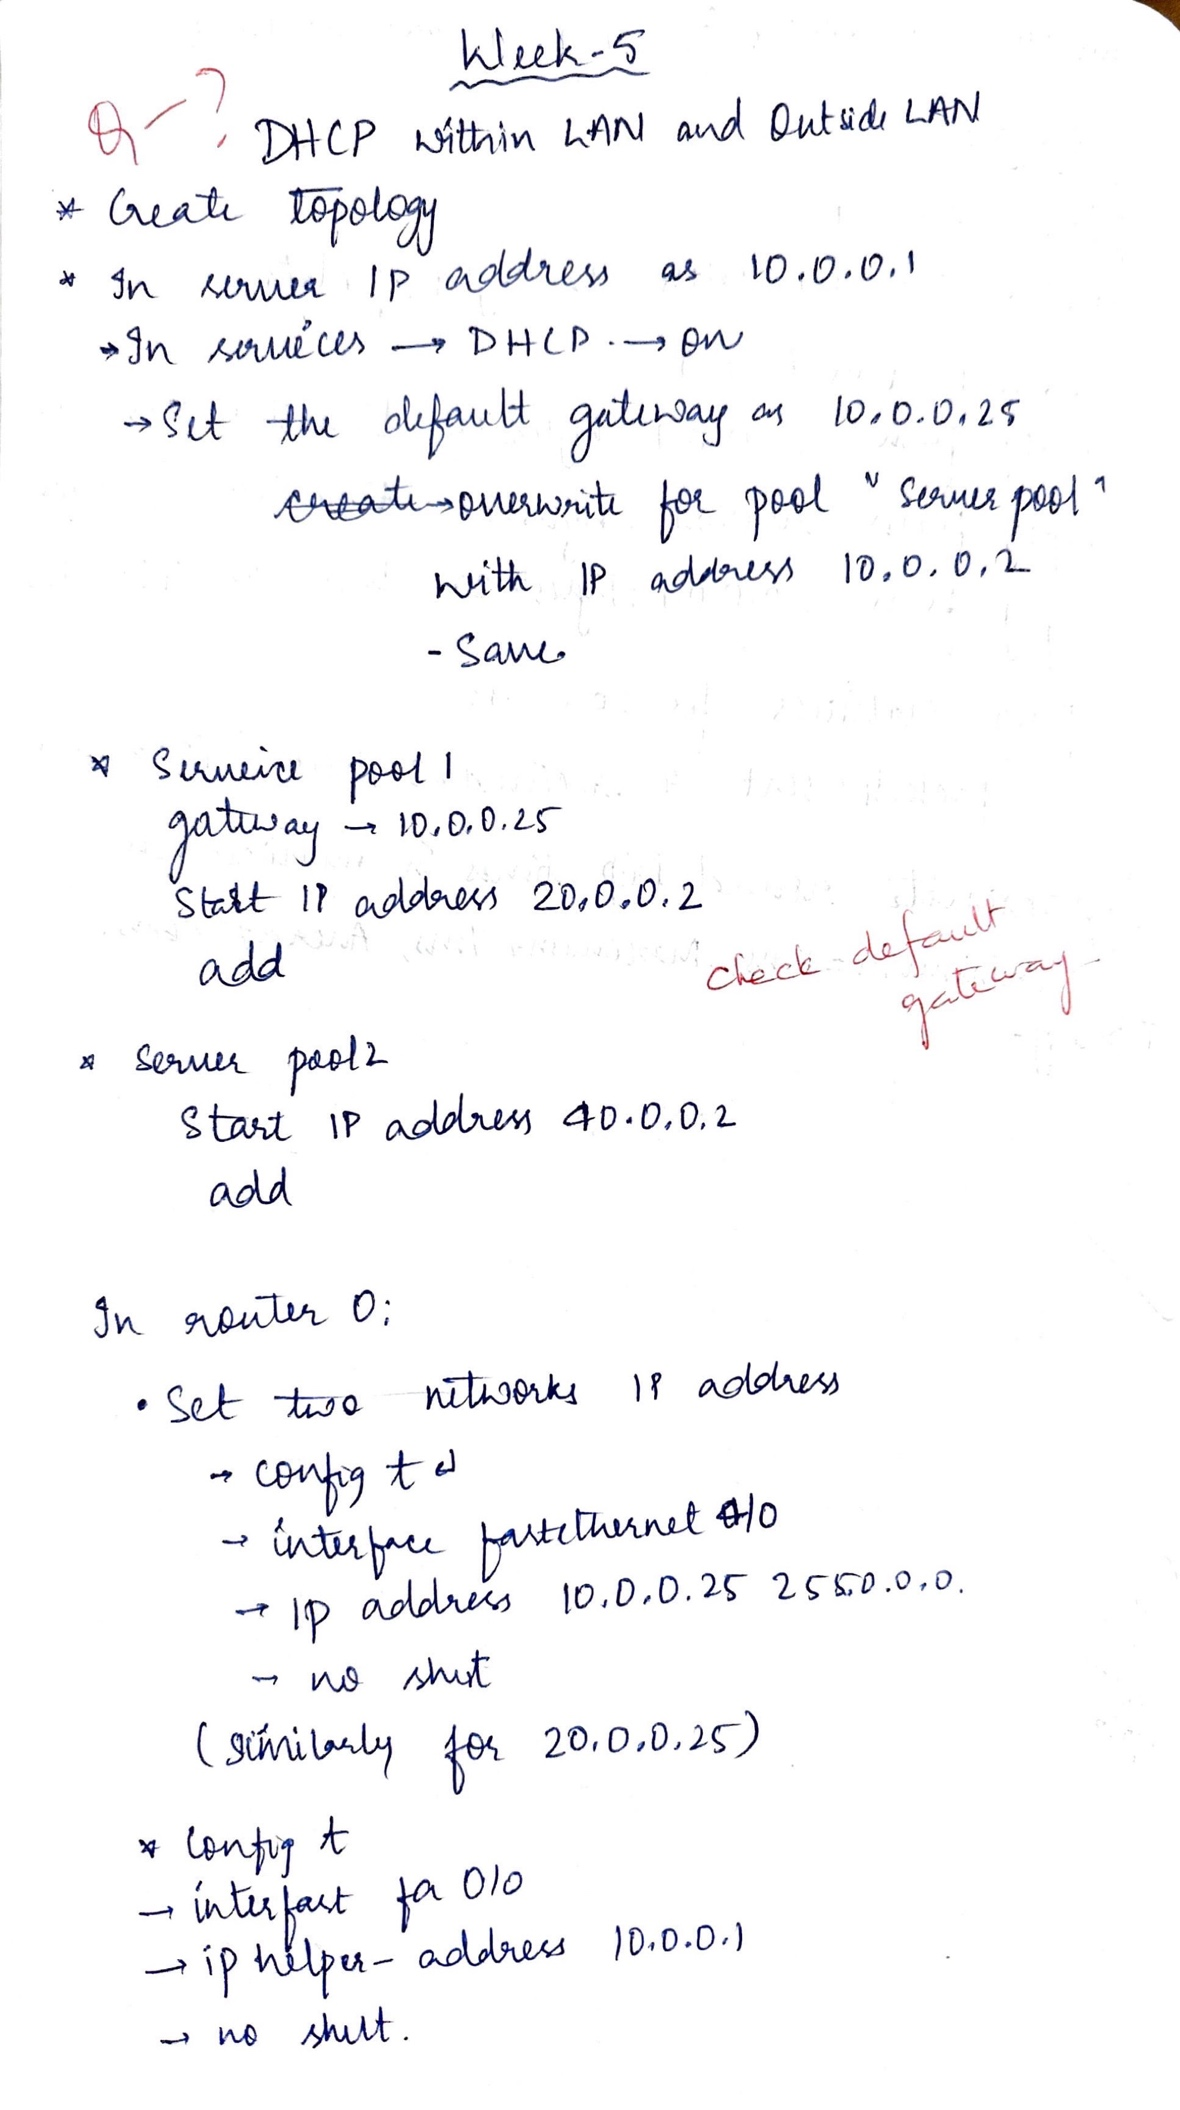 Week-5
Q-?
DHCP within LAN and Outside LAN
* Create topology
* In server IP address as 10.0.0.1
→ In services → DHCP. → ON
→ Set the default gateway as 10.0.0.25
create → overwrite for pool "Server pool"
with IP address 10.0.0.2
- Save
* Serveice pool 1
gateway → 10.0.0.25
Start IP address 20.0.0.2
add
check default
gateway
* Server pool2
Start IP address 40.0.0.2
add
In router 0;
• Set two networks IP address
→ config t ↵
→ interface fastethernet 4/0
→ IP address 10.0.0.25 255.0.0.0.
→ no shut
(similarly for 20.0.0.25)
* Config t
→ interfast fa 0/0
→ ip helper-address 10.0.0.1
→ no shut.